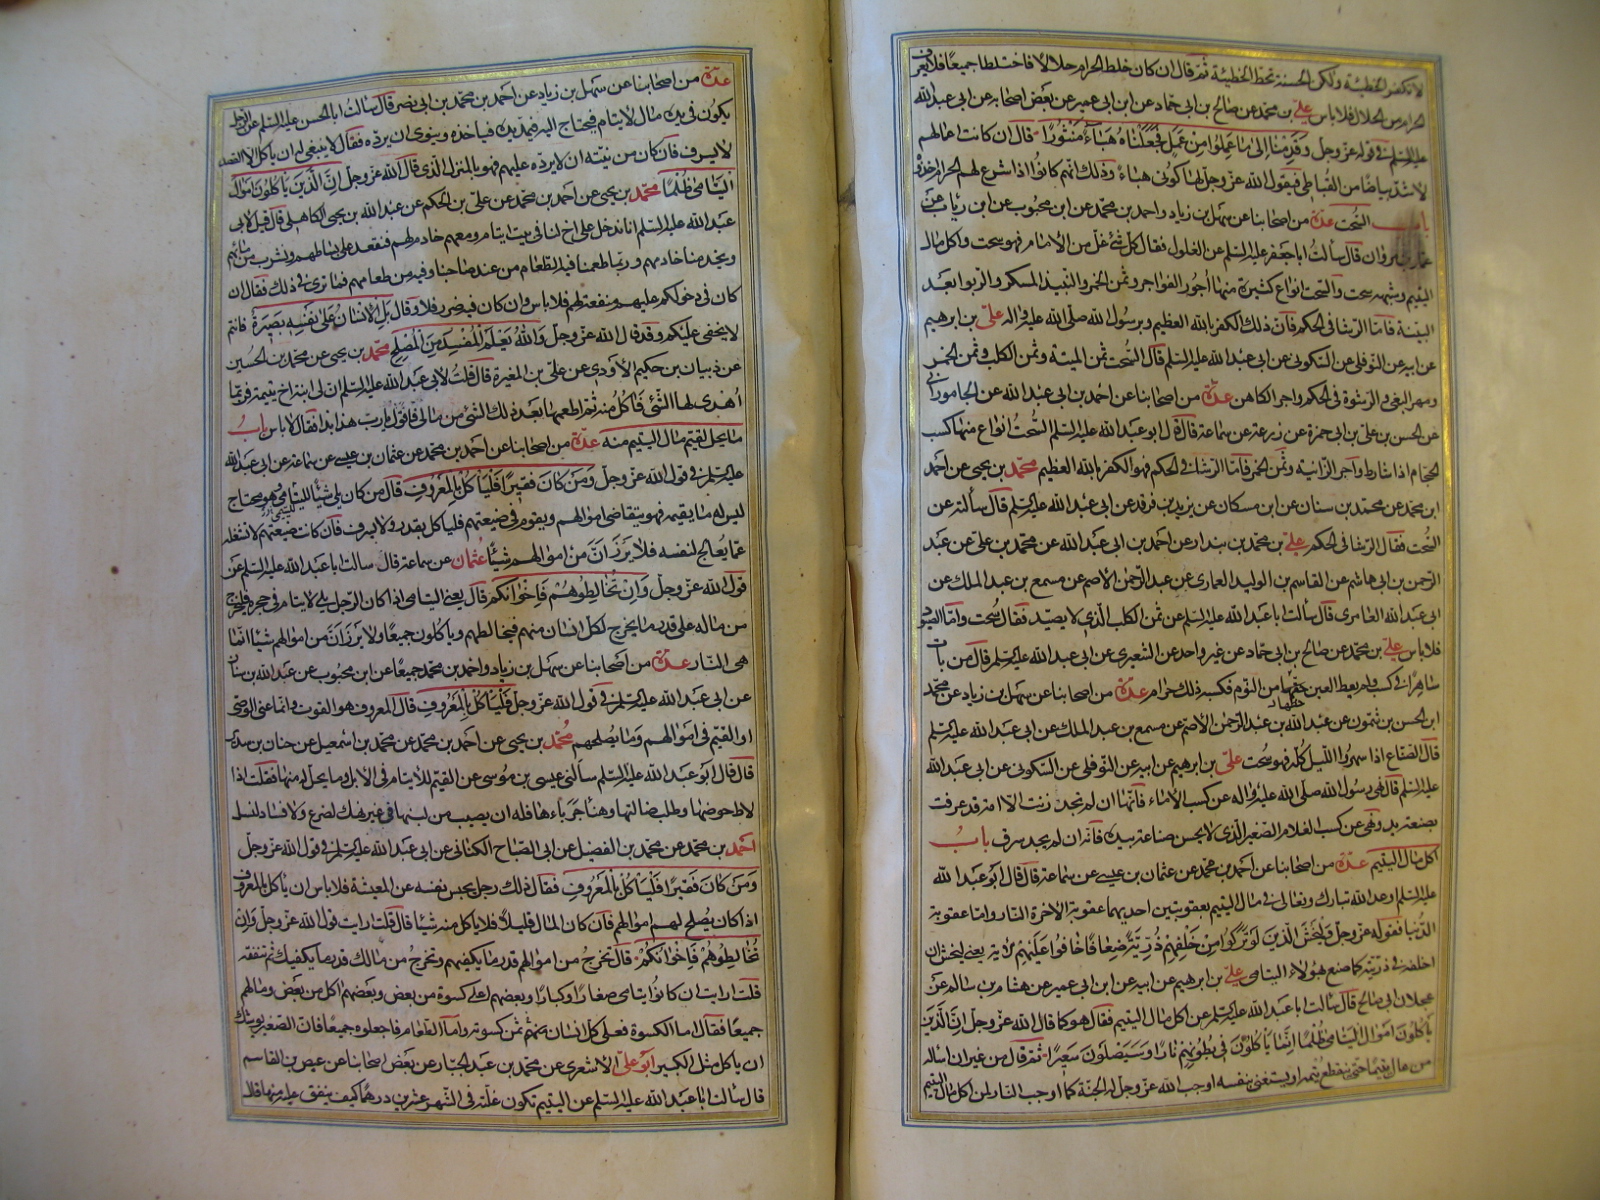 لا تكفر الخطيئة ولكن الحسنة تحط الخطيئة ثم قال ان كان خلط الحرام حلالا فاختلطا جميعا فلا يعرف
الحرام من الحلال فلا باس علي بن محمد عن صالح بن ابي حماد عن ابن ابي عمير عن بعض اصحابه عن ابي عبد الله
عليه السلم في قوله عز وجل وقدمنا الى ما عملوا من عمل فجعلناه هباء منثورا قال ان كانت اعمالهم
لاشد بياضا من القباطي فيقول الله عز وجل لها كوني هباء وذلك انهم كانوا اذا شرع لهم الحرام اخذوه
باب السحت عدة من اصحابنا عن سهل بن زياد واحمد بن محمد عن ابن محبوب عن ابن رياب عن
عمار بن مروان قال سالت ابا جعفر عليه السلم عن الغلول فقال كل شئ غل من الامام فهو سحت واكل مال
اليتيم وشبهه سحت والسحت انواع كثيرة منها اجور الفواجر وثمن الخمر والنبيذ المسكر والربوا بعد
البينة فاما الرشا في الحكم فان ذلك الكفر بالله العظيم وبرسول الله صلى الله عليه واله علي بن ابرهيم
عن ابيه عن النوفلي عن السكوني عن ابي عبد الله عليه السلم قال السحت ثمن الميتة وثمن الكلب وثمن الخمر
ومهر البغي والرشوة في الحكم واجر الكاهن عدة من اصحابنا عن احمد بن ابي عبد الله عن الجاموراني
عن الحسن بن علي بن ابي حمزة عن زرعة عن سماعة قال قال ابو عبد الله عليه السلم السحت انواع منها كسب
الحجام اذا شارط واجر الزانية وثمن الخمر فاما الرشا في الحكم فهو الكفر بالله العظيم محمد بن يحيى عن احمد
ابن محمد عن محمد بن سنان عن ابن مسكان عن يزيد بن فرقد عن ابي عبد الله عليه السلم قال سالته عن
السحت فقال الرشا في الحكم علي بن محمد بن بندار عن احمد بن ابي عبد الله عن محمد بن علي عن عبد
الرحمن بن ابي هاشم عن القاسم بن الوليد العماري عن عبد الرحمن الاصم عن مسمع بن عبد الملك عن
ابي عبد الله العامري قال سالت ابا عبد الله عليه السلم عن ثمن الكلب الذي لا يصيد فقال سحت واما الصيود
فلا باس علي بن محمد عن صالح بن ابي حماد عن غير واحد عن الشعيري عن ابي عبد الله عليه السلم قال من بات
ساهرا في كسب ولم يعط العين حقها من النوم فكسبه ذلك حرام عدة من اصحابنا عن سهل بن زياد عن محمد
ابن الحسن بن شمون عن عبد الله بن عبد الرحمن الاصم عن مسمع بن عبد الملك عن ابي عبد الله عليه السلم
قال الصناع اذا سهروا الليل كله فهو سحت علي بن ابرهيم عن ابيه عن النوفلي عن السكوني عن ابي عبد الله
عليه السلم قال نهى رسول الله صلى الله عليه واله عن كسب الاماء فانها ان لم تجد زنت الا امة قد عرفت
بصنعة يد ونهى عن كسب الغلام الصغير الذي لا يحسن صناعة بيده فانه ان لم يجد سرق باب
اكل مال اليتيم عدة من اصحابنا عن احمد بن محمد عن عثمان بن عيسى عن سماعة قال قال ابو عبد الله
عليه السلم اوعد الله تبارك وتعالى في مال اليتيم بعقوبتين احديهما عقوبة الاخرة النار واما عقوبة
الدنيا فقوله عز وجل وليخش الذين لو تركوا من خلفهم ذرية ضعافا خافوا عليهم الاية يعني ليخش ان
اخلفه في ذريته كما صنع بهؤلاء اليتامى علي بن ابرهيم عن ابيه عن ابن ابي عمير عن هشام بن سالم عن
عجلان ابي صالح قال سالت ابا عبد الله عليه السلم عن اكل مال اليتيم فقال هو كما قال الله عز وجل ان الذين
ياكلون اموال اليتامى ظلما انما ياكلون في بطونهم نارا وسيصلون سعيرا ثم قال من غير ان اساله
من عال يتيما حتى ينقطع يتمه او يستغني بنفسه اوجب الله عز وجل له الجنة كما اوجب النار لمن اكل مال اليتيم
عدة من اصحابنا عن سهل بن زياد عن احمد بن محمد بن ابي نصر قال سالت ابا الحسن عليه السلم عن الرجل
يكون في يده مال لايتام فيحتاج اليه فيمد يده فياخذه وينوي ان يرده فقال لا ينبغي له ان ياكل الا القصد
لا يسرف فان كان من نيته ان لا يرده عليهم فهو بالمنزل الذي قال الله عز وجل ان الذين ياكلون اموال
اليتامى ظلما محمد بن يحيى عن احمد بن محمد عن علي بن الحكم عن عبد الله بن يحيى الكاهلي قال قيل لابي
عبد الله عليه السلم انا ندخل على اخ لنا في بيت ايتام ومعهم خادم لهم فنقعد على بساطهم ونشرب من مائهم
ويخدمنا خادمهم وربما طعمنا فيه الطعام من عند صاحبنا وفيه من طعامهم فما ترى في ذلك فقال ان
كان في دخولكم عليهم منفعة لهم فلا باس وان كان فيه ضرر فلا وقال بل الانسان على نفسه بصيرة فانتم
لا يخفى عليكم وقد قال الله عز وجل والله يعلم المفسد من المصلح محمد بن يحيى عن محمد بن الحسين
عن ذبيان بن حكيم الاودي عن علي بن المغيرة قال قلت لابي عبد الله عليه السلم ان لي ابنة اخ يتيمة فربما
اهدى لها الشئ فاكل منه ثم اطعمها بعد ذلك الشئ من مالي فاقول يا رب هذا بذا فقال لا باس باب
ما يحل لقيم مال اليتيم منه عدة من اصحابنا عن احمد بن محمد عن عثمان بن عيسى عن سماعة عن ابي عبد الله
عليه السلم في قول الله عز وجل ومن كان فقيرا فلياكل بالمعروف قال من كان يلي شيئا لليتامى وهو محتاج
ليس له ما يقيمه فهو يتقاضى اموالهم ويقوم في ضيعتهم فلياكل بقدر ولا يسرف فان كانت ضيعتهم لا تشغله
عما يعالج لنفسه فلا يرزان من اموالهم شيئا عثمان عن سماعة قال سالت ابا عبد الله عليه السلم عن
قول الله عز وجل وان تخالطوهم فاخوانكم قال يعني اليتامى اذا كان الرجل يلي لايتام في حجره فليخرج
من ماله على قدر ما يخرج لكل انسان منهم فيخالطهم وياكلون جميعا ولا يرزان من اموالهم شيئا انما
هي النار عدة من اصحابنا عن سهل بن زياد واحمد بن محمد جميعا عن ابن محبوب عن عبد الله بن سنان
عن ابي عبد الله عليه السلم في قول الله عز وجل فلياكل بالمعروف قال المعروف هو القوت وانما عنى الوصي
او القيم في اموالهم وما يصلحهم محمد بن يحيى عن احمد بن محمد عن محمد بن اسمعيل عن حنان بن سدير
قال قال ابو عبد الله عليه السلم سالني عيسى بن موسى عن القيم للايتام في الابل وما يحل له منها فقلت اذا
لاط حوضها وطلب ضالتها وهنا جرباءها فله ان يصيب من لبنها في غير نهك لضرع ولا فساد لنسل
احمد بن محمد عن محمد بن الفضيل عن ابي الصباح الكناني عن ابي عبد الله عليه السلم في قول الله عز وجل
ومن كان فقيرا فلياكل بالمعروف فقال ذلك رجل يحبس نفسه عن المعيشة فلا باس ان ياكل بالمعروف
اذا كان يصلح لهم اموالهم فان كان المال قليلا فلا ياكل منه شيئا قال قلت ارايت قول الله عز وجل وان
تخالطوهم فاخوانكم قال تخرج من اموالهم قدر ما يكفيهم وتخرج من مالك قدر ما يكفيك ثم تنفقه
قلت ارايت ان كانوا يتامى صغارا وكبارا وبعضهم اعلى كسوة من بعض وبعضهم اكل من بعض ومالهم
جميعا فقال اما الكسوة فعلى كل انسان منهم ثمن كسوته واما الطعام فاجعلوه جميعا فان الصغير يوشك
ان ياكل مثل الكبير ابو علي الاشعري عن محمد بن عبد الجبار عن بعض اصحابنا عن عيص بن القاسم
قال سالت ابا عبد الله عليه السلم عن اليتيم تكون غلته في الشهر عشرين درهما كيف ينفق عليه منها قال